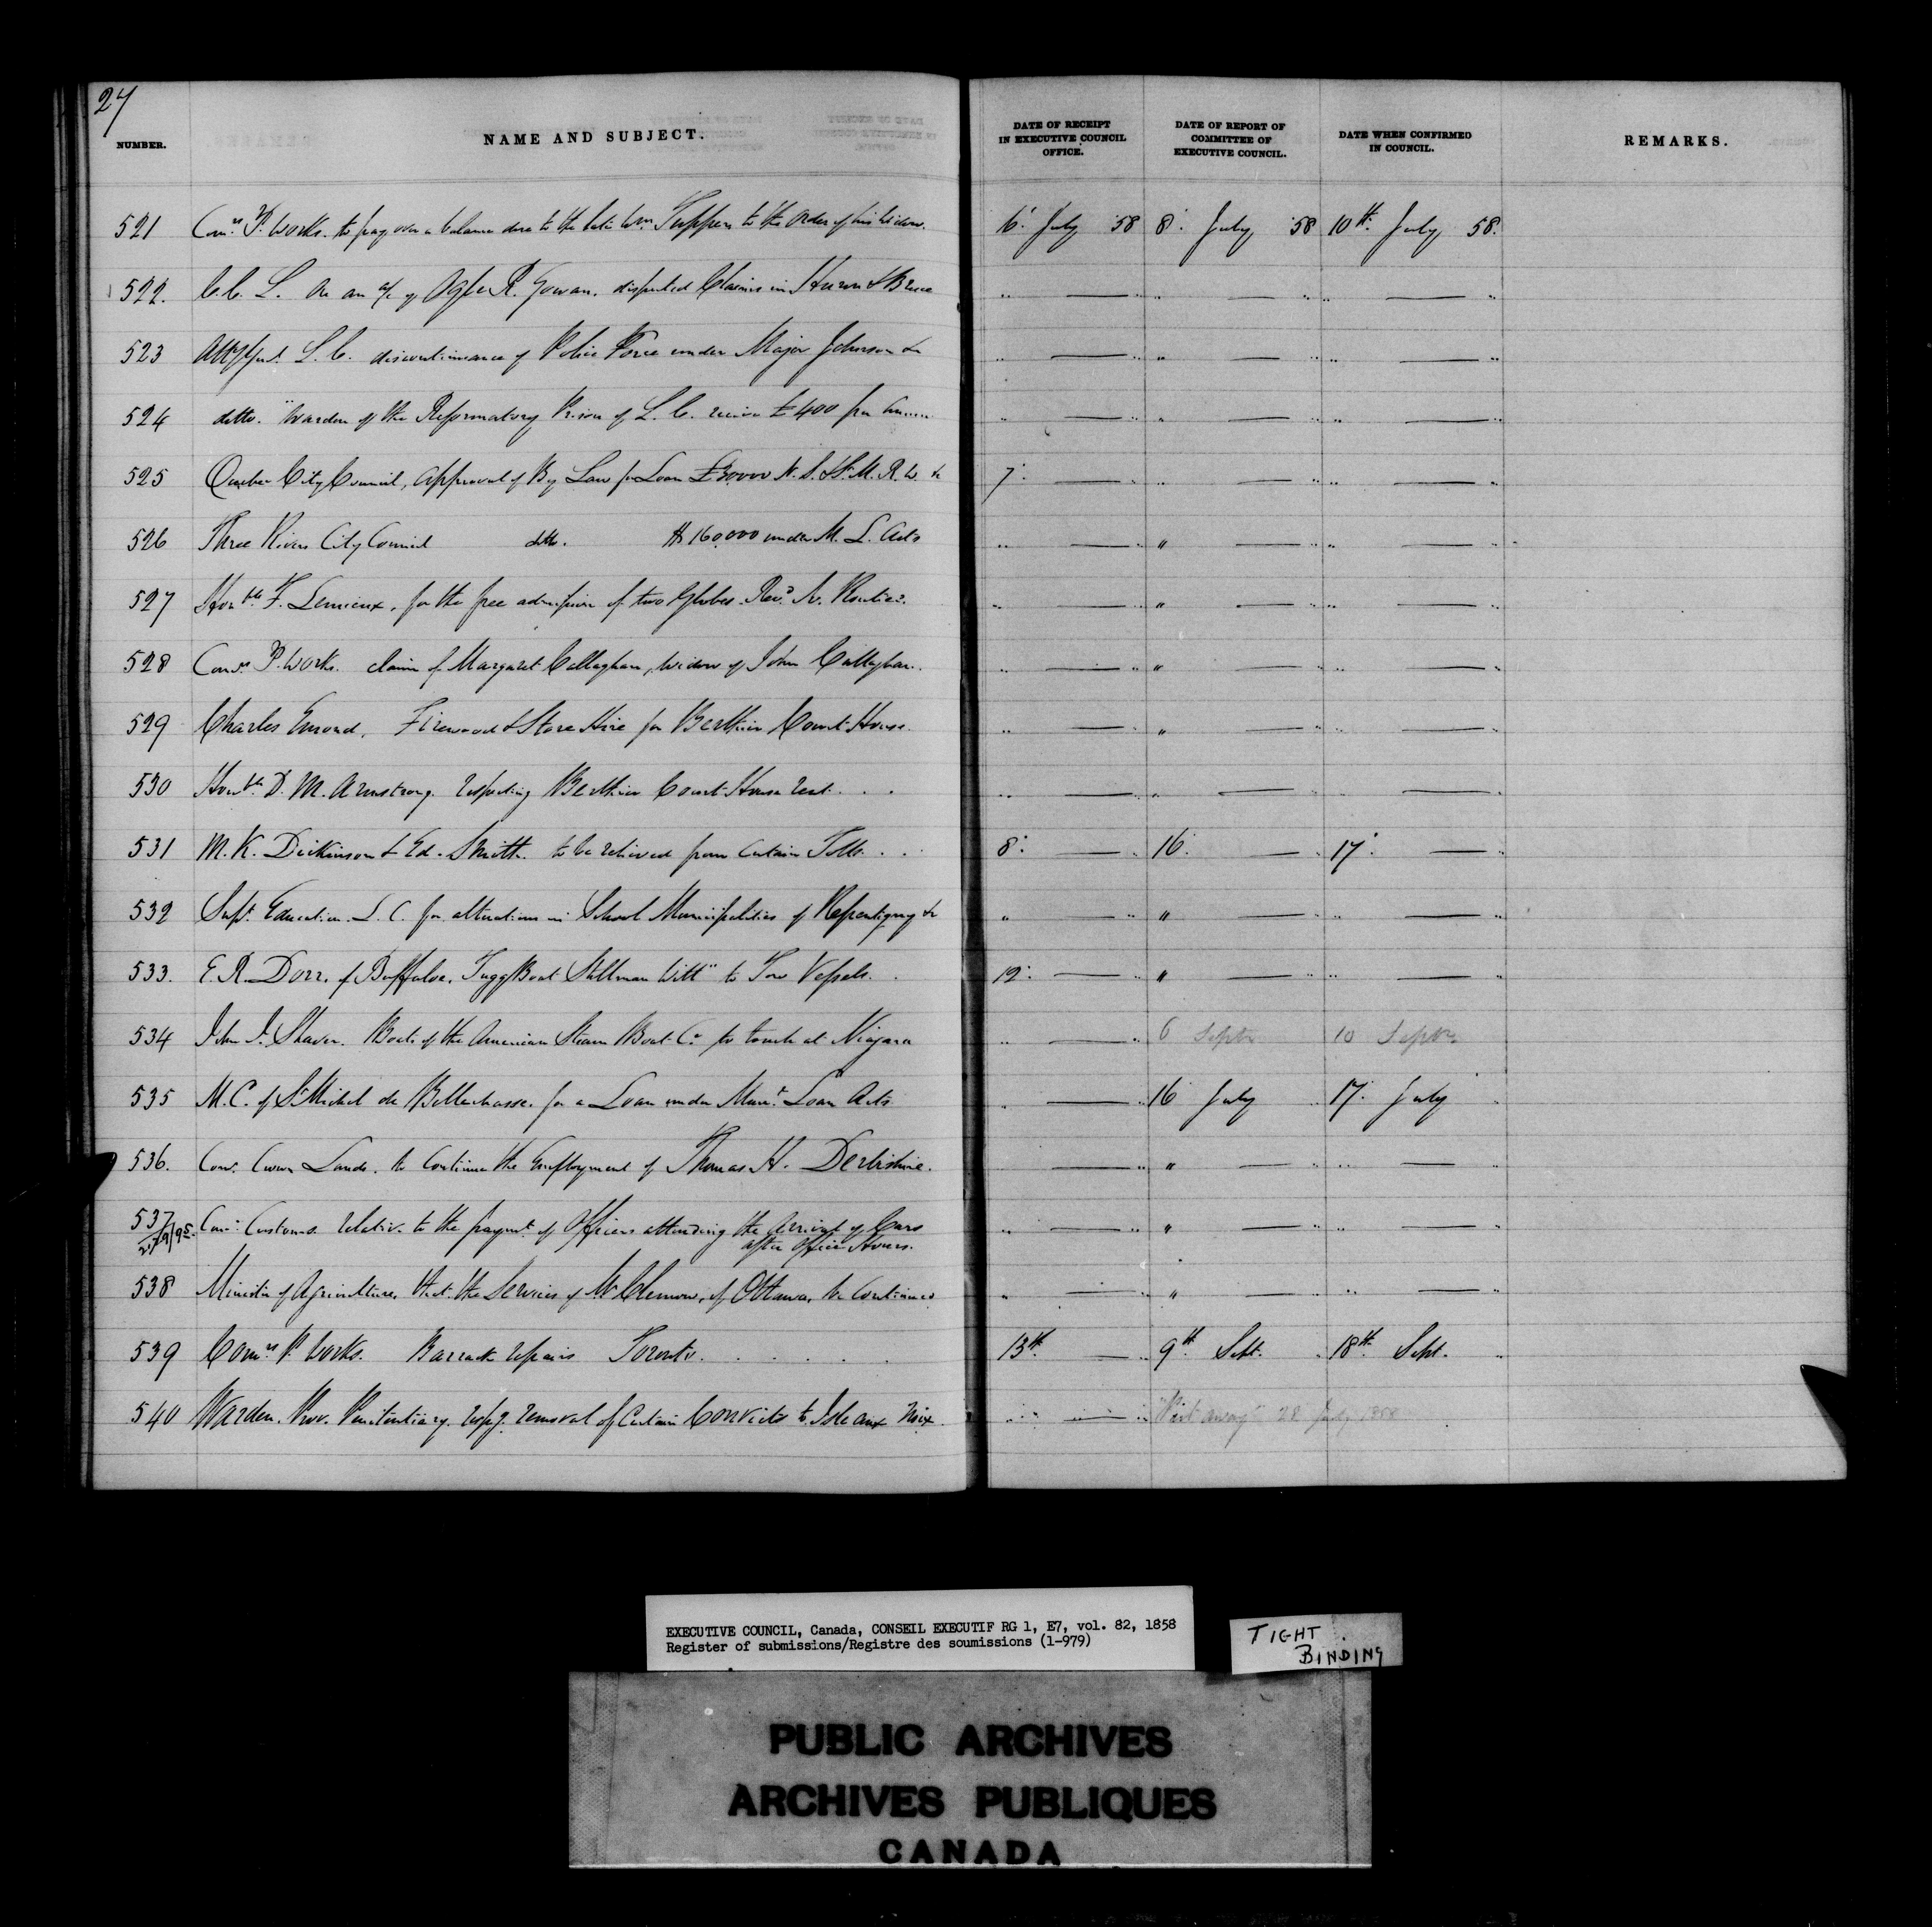 27
NUMBER. NAME AND SUBJECT. DATE OF RECEIPT IN EXECUTIVE COUNCIL OFFICE. DATE OF REPORT OF COMMITTEE OF EXECUTIVE COUNCIL. DATE WHEN CONFIRMED IN COUNCIL. REMARKS.
521 Comrs P. Works. to pay over a balance due to the late Wm. Tuppen to the order of his Widow. 6: July 58 8: July 58 10th. July 58.
522. C. C. L. on an a/c of Ogle R. Gowan. disputed Claims in Huron & Bruce " — " " — " " — "
523 Atty Genl. L. C. discontinuance of Police Force under Major Johnson &c " — " " — " " — "
524 ditto. Warden of the Reformatory Prison of L. C. receive £400 per Annum " — " " — " " — "
525 Quebec City Council, Approval of By Law for Loan £30000 N. S. & St. M. R. W. &c 7: — " " — " " — "
526 Three Rivers City Council ditto. $160,000 under M. L. Acts " — " " — " " — "
527 Honble. F. Lemieux, for the free admission of two Globes. Revd. N. " — " " — " " — "
528 Comrs P. Works. claim of Margaret Callaghan, widow of John Callaghan. " — " " — " " — "
529 Charles Emond. Firewood & Stove Hire for Berthier Court House. " — " " — " " — "
530 Honble D. M. Armstrong. respecting Berthier Court House rent. . . " — " " — " " — "
531 M. K. Dickinson & Ed. Smith. to be relieved from certain Tolls. . . 8: — " 16. — " 17: — "
532 Supt. Education. L. C. for alterations in School Municipalities of Repentigny &c " — " " — " " — "
533. E. R. Dorr. of Buffaloe. Tugg Boat Stillman Witt" to Tow Vessels. . 12: — " " — " " — "
534 John J. Shaver. Boats of the American Steam Boat Co. to touch at Niagara " — " 6 Septr 10 Septr
535 M. C. of St Michel de Bellechasse. for a Loan under Muni. Loan Acts " — " 16 July " 17: July "
536. Com. Crown Lands. to continue the Employment of Thomas H. Derbishire. — " " — " " — "
537 Com: Customs. relative to the paymt. of Officers attending the Arrival of Cars " — " " — " " — "
after Office Hours.
538 Minister of Agriculture, that the Services of Mr Clemow, of Ottawa, be continued " — " " — " " — "
539 Comrs P. Works. Barrack repairs Toronto. . . . . . 13th. — " 9th. Sept. " 18th. Sept. "
540 Warden. Prov. Penitentiary. respg. removal of Certain Convicts to Isle aux Noix " — " "Put away" 28 July 1858
EXECUTIVE COUNCIL, Canada, CONSEIL EXECUTIF RG 1, E7, vol. 82, 1858
Register of submissions/Registre des soumissions (1-979)
TIGHT
BINDING
PUBLIC ARCHIVES
ARCHIVES PUBLIQUES
CANADA